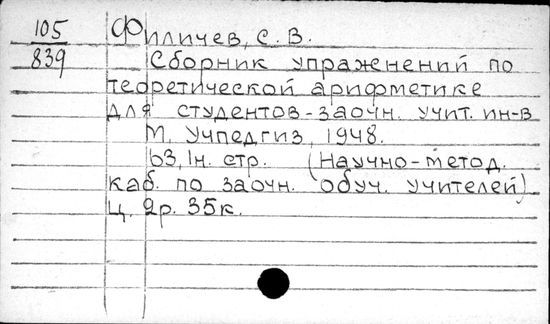 105 Филичев, С. В.
839 Сборник упражнений по
теоретической арифметике
для студентов-заочн. учит. ин-в
М., Учпедгиз, 1948.
63, 1н. стр. (Научно-метод.
каб. по заочн. обуч. учителей)
Ц. 2р. 35к.